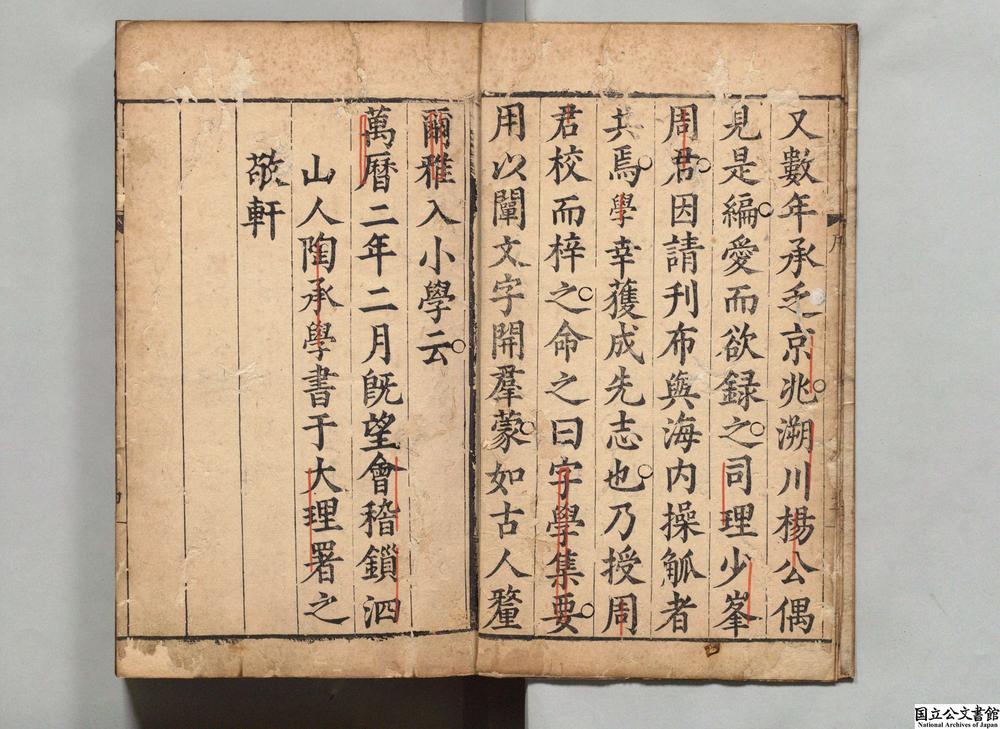 又數年承乏京兆溯川楊公偶
見是編愛而欲録之司理少峯
周君因請刊布與海内操觚者
共焉學幸獲成先志也乃授周
君校而梓之命之曰字學集要
用以闡文字開羣蒙如古人釐
爾雅入小學云
萬曆二年二月旣望會稽鎖泗
山人陶承學書于大理署之
敬軒
序
国立公文書館
National Archives of Japan